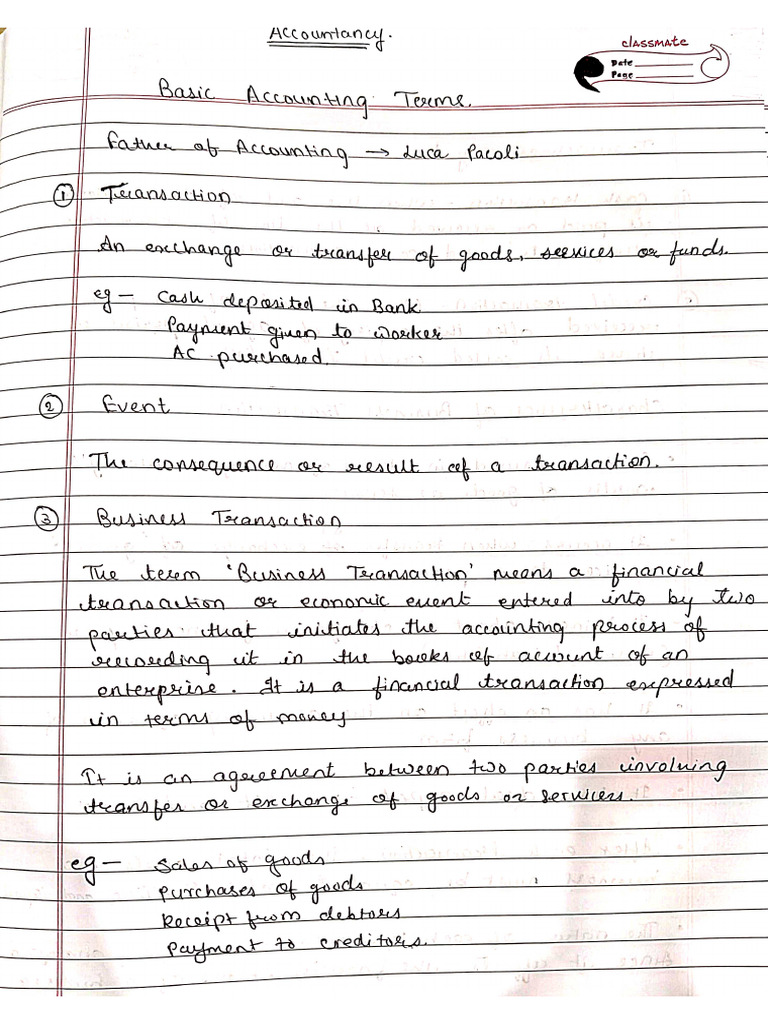 Accountancy.
classmate
Date
Page
Basic Accounting Terms.
Father of Accounting → Luca Pacoli
① Transaction
An exchange or transfer of goods, services or funds.
eg – Cash deposited in Bank
Payment given to worker
AC purchased.
② Event
The consequence or result of a transaction.
③ Business Transaction
The term 'Business Transaction' means a financial
transaction or economic event entered into by two
parties that initiates the accounting process of
recording it in the books of account of an
enterprise. It is a financial transaction expressed
in terms of money
It is an agreement between two parties involving
transfer or exchange of goods or services.
eg – Sales of goods
Purchases of goods
Receipt from debtors
Payment to creditors.